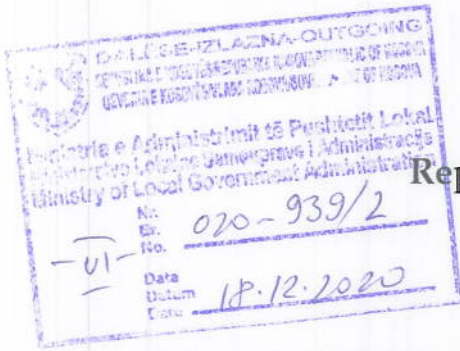 DALËSE-IZLAZNA-OUTGOING
Ministria e Administrimit të Pushtetit Lokal
Ministarstvo Lokalne Samouprave i Administracije
Ministry of Local Government Administration
Rep
Nr.
Br.
No. 020-939/2
-VI-
Data
Datum
Date 18.12.2020